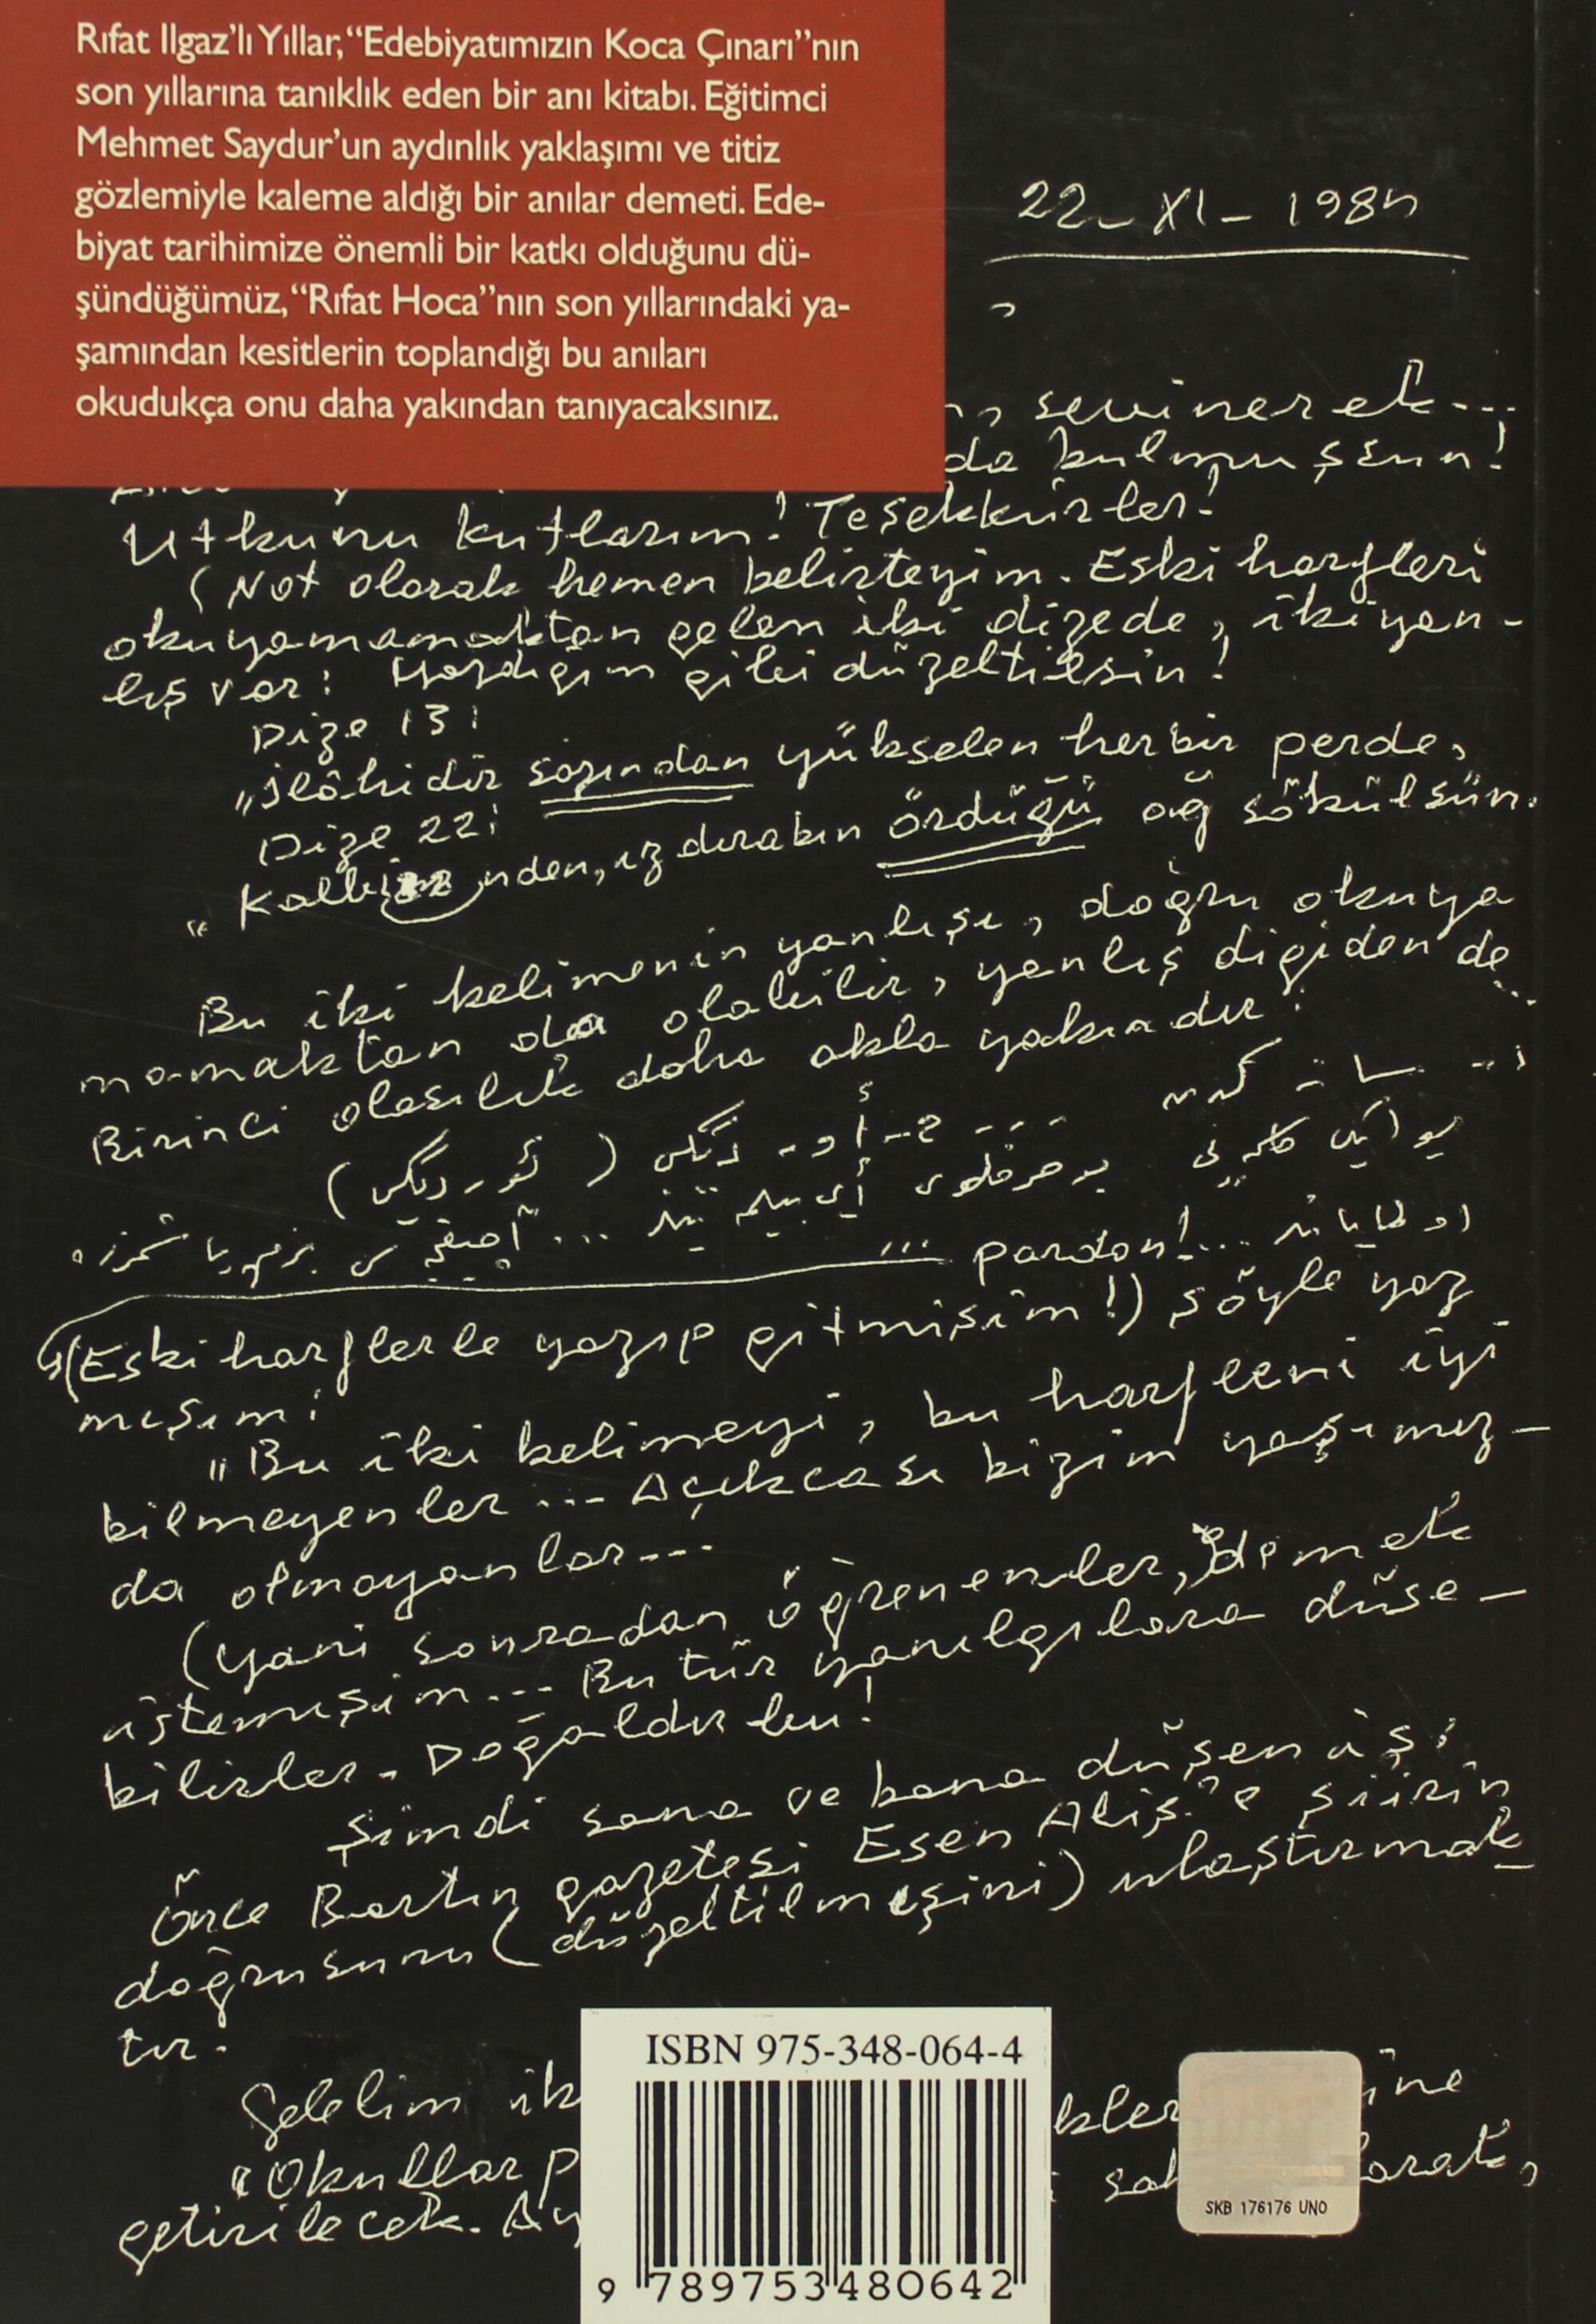 Rıfat Ilgaz’lı Yıllar, “Edebiyatımızın Koca Çınarı”nın
son yıllarına tanıklık eden bir anı kitabı. Eğitimci
Mehmet Saydur’un aydınlık yaklaşımı ve titiz
gözlemiyle kaleme aldığı bir anılar demeti. Ede-
biyat tarihimize önemli bir katkı olduğunu dü-
şündüğümüz, “Rıfat Hoca”nın son yıllarındaki ya-
şamından kesitlerin toplandığı bu anıları
okudukça onu daha yakından tanıyacaksınız.
22-XI-198
sevinerek...
da bulmuşsun!
Utkunu kutlarım! Teşekkürler!
(Not olarak hemen belirteyim. Eski harfleri
okuyamamaktan gelen iki dizede, iki yan-
lış var: Yazdığım gibi düzeltilsin!
Dize 13:
"İlâhidir sazından yükselen her bir perde,
Dize 22:
"Kalbinden, ızdırabın ördüğü ağ sökülsün.
Bu iki kelimenin yanlışı, doğru okuya
mamaktan da olabilir, yanlış digiden de...
Birinci olasılık daha akla yakındır!
... pardon!...
(Eski harflerle yazıp gitmişim!) şöyle yaz
mışım:
"Bu iki kelimeyi, bu harfleri iyi
bilmeyenler... Açıkcası bizim yaşımız-
da olmayanlar...
(yani sonradan öğrenenler, demek
istemişim... Bu tür yanılgılara düşe-
bilirler. Doğaldır bu!
Şimdi sana ve bana düşen iş:
Önce Bartın gazetesi Esen Aliş'e şiirin
doğrusunu (düzeltilmişini) ulaştırmak
tır.
Gelelim ik
kler ine
"Okullar p
orak,
getirilecek. Ay
ISBN 975-348-064-4
9 789753 480642
SKB 176176 UNO